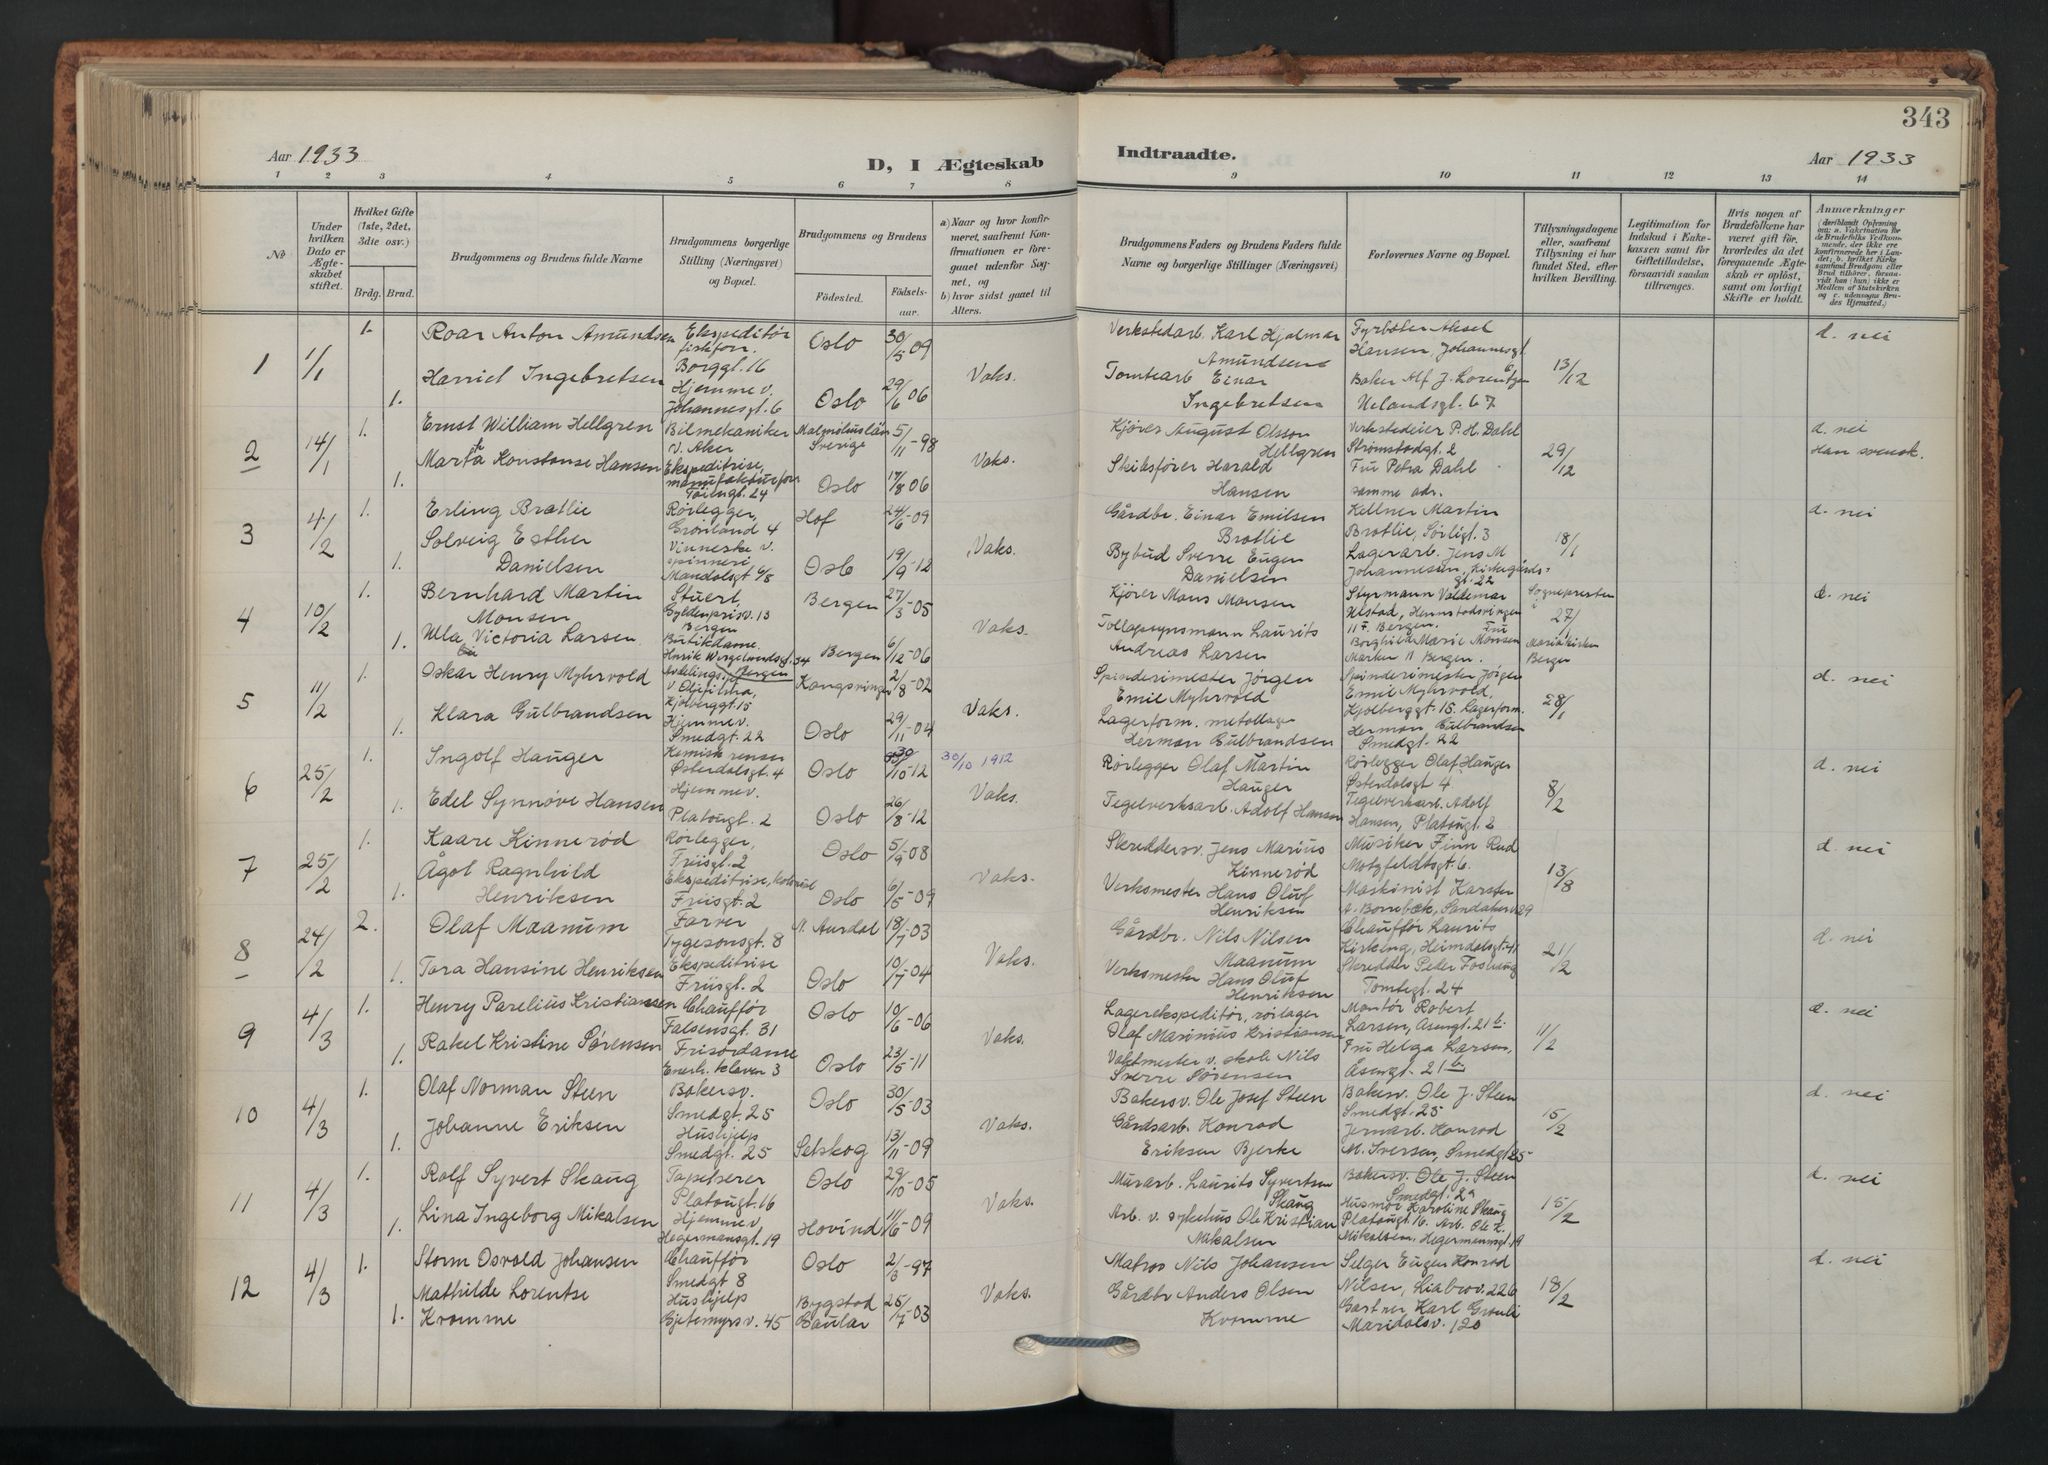 343
Aar 1933
D, I Ægteskab
Indtraadte.
Aar 1933
1 2 3 4 5 6 7 8 9 10 11 12 13 14
No
Under hvilken Dato er Ægteskabet stiftet.
Hvilket Gifte (1ste, 2det, 3dte osv.)
Brdg. Brud.
Brudgommens og Brudens fulde Navne
Brudgommens borgerlige Stilling (Næringsvei) og Bopæl.
Brudgommens og Brudens
Fødested. Fødselsaar.
a) Naar og hvor konfirmeret, saafremt Konfirmationen er foregaaet udenfor Sognet, og
b) hvor sidst gaaet til Alters.
Brudgommens Faders og Brudens Faders fulde Navne og borgerlige Stillinger (Næringsvei)
Forlovernes Navne og Bopæl.
Tillysningsdagene eller, saafremt Tillysning ei har fundet Sted, efter hvilken Bevilling.
Legitimation for Indskud i Enkekassen samt for Giftetilladelse, forsaavidt saadan tiltrænges.
Hvis nogen af Brudefolkene har været gift før, hvorledes da det foregaaende Ægteskab er opløst, samt om lovligt Skifte er holdt.
Anmærkninger
1 1/1 1. Roar Anton Amundsen Ekspeditør fiskforr. Borggt. 16 Oslo 30/5 09
1. Harriet Ingebretsen Hjemme v. Johannesgt. 6 Oslo 29/6 06 Vaks.
Verkstedarb. Karl Hjalmar Amundsen
Tomtearb Einar Ingebretsen
Fyrbøter Aksel Hansen Johannesgt. 6
Baker Alf J. Lorentzen Uelandsgt. 67
13/12 d. nei
2 14/1 1. Ernst William Hellgren Bilmekaniker V. Aker Malmöhuslän Sverige 5/11-98
1. Martha Konstanse Hansen Ekspeditrise, manufakturforr Tøiengt. 24 Oslo 17/8 06 Vaks.
Kjører August Olsson Hellgren
Skibsfører Harald Hansen
Verkstedeier P. H. Dahl Strømstadgt. 2
Fru Petra Dahl samme adr.
29/12 d. nei
Han svensk.
3 4/2 1. Erling Bratlie Rørlegger, Grønland 4 Hof 24/6-09
1. Solveig Esther Danielsen Vinneske v. spinneri Mandalsgt 6/8 Oslo 19/9-12 Vaks.
Gårdbr. Einar Emilsen Bratlie
Bybud Sverre Eugen Danielsen
Kellner Martin Bratlie, Sørligt. 3
Lagerarb. Jens M Johannesen, Kirkegårdsgt. 22
18/1 d. nei
4 10/2 1. Bernhard Martin Monsen Stuert, Gyldenprisv. 13 Bergen Bergen 27/3-05
1. Ulla Victoria Larsen Butikdame. Henrik Wergelandsgt. 34 Bergen Bergen 6/12-06 Vaks.
Kjører Mons Monsen
Tollopsynsmann Laurits Andreas Larsen
Styrmann Valdemar Ulstad, 11 F. Bergen.
Fru Borghild Marie Monsen Marken 11 Bergen.
Sognepresten i 27/1 Mariakirken Bergen d. nei
5 11/2 1. Oskar Henry Myhrvold Kjølberggt. 15 Kongsvinger 2/8-02
1. Klara Gulbrandsen Hjemme v. Smedgt. 22 Oslo 29/11-04 Vaks.
Spinderimester Jørgen Emil Myhrvold
Lagerform. metallager Herman Gulbrandsen
Spinderimester Jørgen Emil Myhrvold, Kjølberggt 15.
Lagerform. Herman Gulbrandsen Smedgt. 22
28/1 d. nei
6 25/2 1. Ingolf Hauger Kemisk renseri Østerdalsgt. 4 Oslo 30/10-12 30/10 1912
1. Edel Synnøve Hansen Hjemme v. Platousgt. 2 Oslo 26/8-12 Vaks.
Rørlegger Olaf Martin Hauger
Teglverksarb. Adolf Hansen
Rørlegger Olaf Hauger Østerdalsgt 4
Teglverksarb. Adolf Hansen, Platougt. 2
8/2 d. nei
7 25/2 1. Kaare Kinnerød Rørlegger, Friisgt. 2 Oslo 5/9-08
1. Ågot Ragnhild Henriksen Ekspeditrise, kolonial Friisgt. 2 Oslo 6/5-09 Vaks.
Skreddersv. Jens Marius Kinnerød
Verksmester Hans Oluf Henriksen
Musiker Finn Rud Motzfeldtsgt. 6.
Maskinist Karsten A. Borrebæk, Sandakerv 29
13/8 d. nei
8 24/2 2. Olaf Maanum Farver Tygesonsgt. 8 N. Aurdal 18/7-03
1. Tora Hansine Henriksen Ekspeditrise Friisgt. 2 Oslo 10/7-04 Vaks.
Gårdbr. Nils Nilsen Maanum
Verksmester Hans Oluf Henriksen
Chauffør Laurits Kirkeng, Heimdalsgt. 41
Skredder Peder Foshaug Tomtegt. 24
21/2 d. nei
9 4/3 1. Henry Parelius Kristiansen Chauffør Falsensgt. 31 Oslo 10/6-06
1. Rakel Kristine Sørensen Frisørdame Enerh. kleven 3 Oslo 23/5-11 Vaks.
Lagerekspeditør, rørlager Olaf Marinius Kristiansen
Vaktmester v. skole Nils Sverre Sørensen
Montør Robert Larsen, Åsengt. 21 b.
Fru Helga Larsen, Åsengt. 21 b
11/2 d. nei
10 4/3 1. Olaf Norman Steen Bakersv. Smedgt. 25 Oslo 30/5-03
1. Johanne Eriksen Hushjelp Smedgt. 25 Setskog 13/11-09 Vaks.
Bakersv. Ole Josef Steen
Gårdsarb. Konrad Eriksen Bjerke
Bakersv. Ole J. Steen Smedgt. 25
Jernarb. Konrad M. Iversen, Smedgt 25
15/2 d. nei
11 4/3 1. Rolf Syvert Skaug Tapetserer Platougt. 16 Oslo 29/10-05
1. Lina Ingeborg Mikalsen Hjemme v. Hegermansgt. 19 Hovind 11/6-09 Vaks.
Murarb. Laurits Syvertsen Skaug
Arb. v. sykehus Ole Kristian Mikalsen
Bakersv. Ole J. Steen
Husmor Karoline Skaug Platougt 16. Arb. Ole K. Mikalsen, Hegermansgt. 19
15/2 d. nei
12 4/3 1. Storm Osvald Johansen Chauffør Smedgt 8 Oslo 2/3-97
1. Mathilde Lorentse Kvamme Hushjelp Gjetemyrsv. 45 Bygstad Gaular 25/7-03 Vaks.
Matros Nils Johansen
Gårdbr Anders Olsen Kvamme
Selger Eugen Konrad Nilsen, Liabrov. 226
Gartner Karl Maridalsv. 120
18/2 d. nei